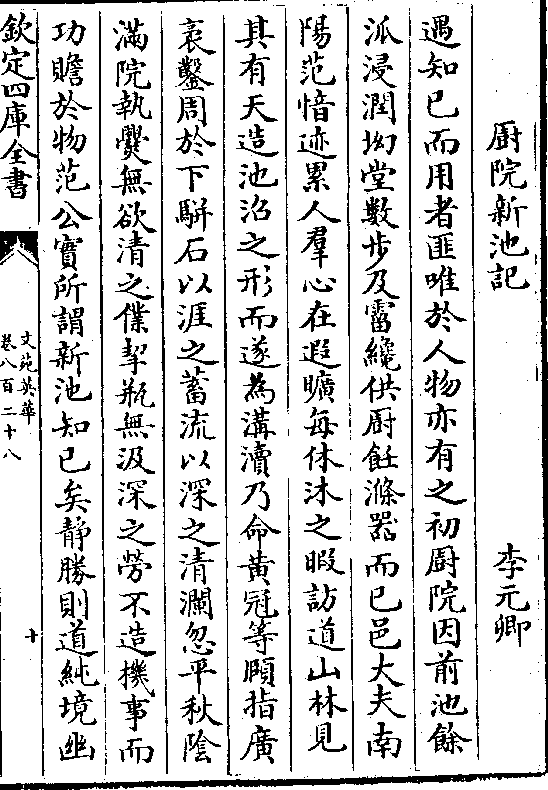 厨院新池記　李元卿
遇知己而用者匪唯於人物亦有之初厨院因前池餘
派浸潤坳堂數步及霤纔供厨飪滌器而已邑大夫南
陽范愔迹累人羣心在遐曠每休沐之暇訪道山林見
其有天造池沼之形而遂為溝瀆乃命黄冠等頤指廣
袤鑿周於下駢石以涯之蓄流以深之清瀾忽平秋陰
滿院執爨無欲清之僕挈瓶無汲深之勞不造機事而
功贍於物范公實所謂新池知己矣靜勝則道純境幽
欽定四庫全書
文苑英華
卷八百二十八
十